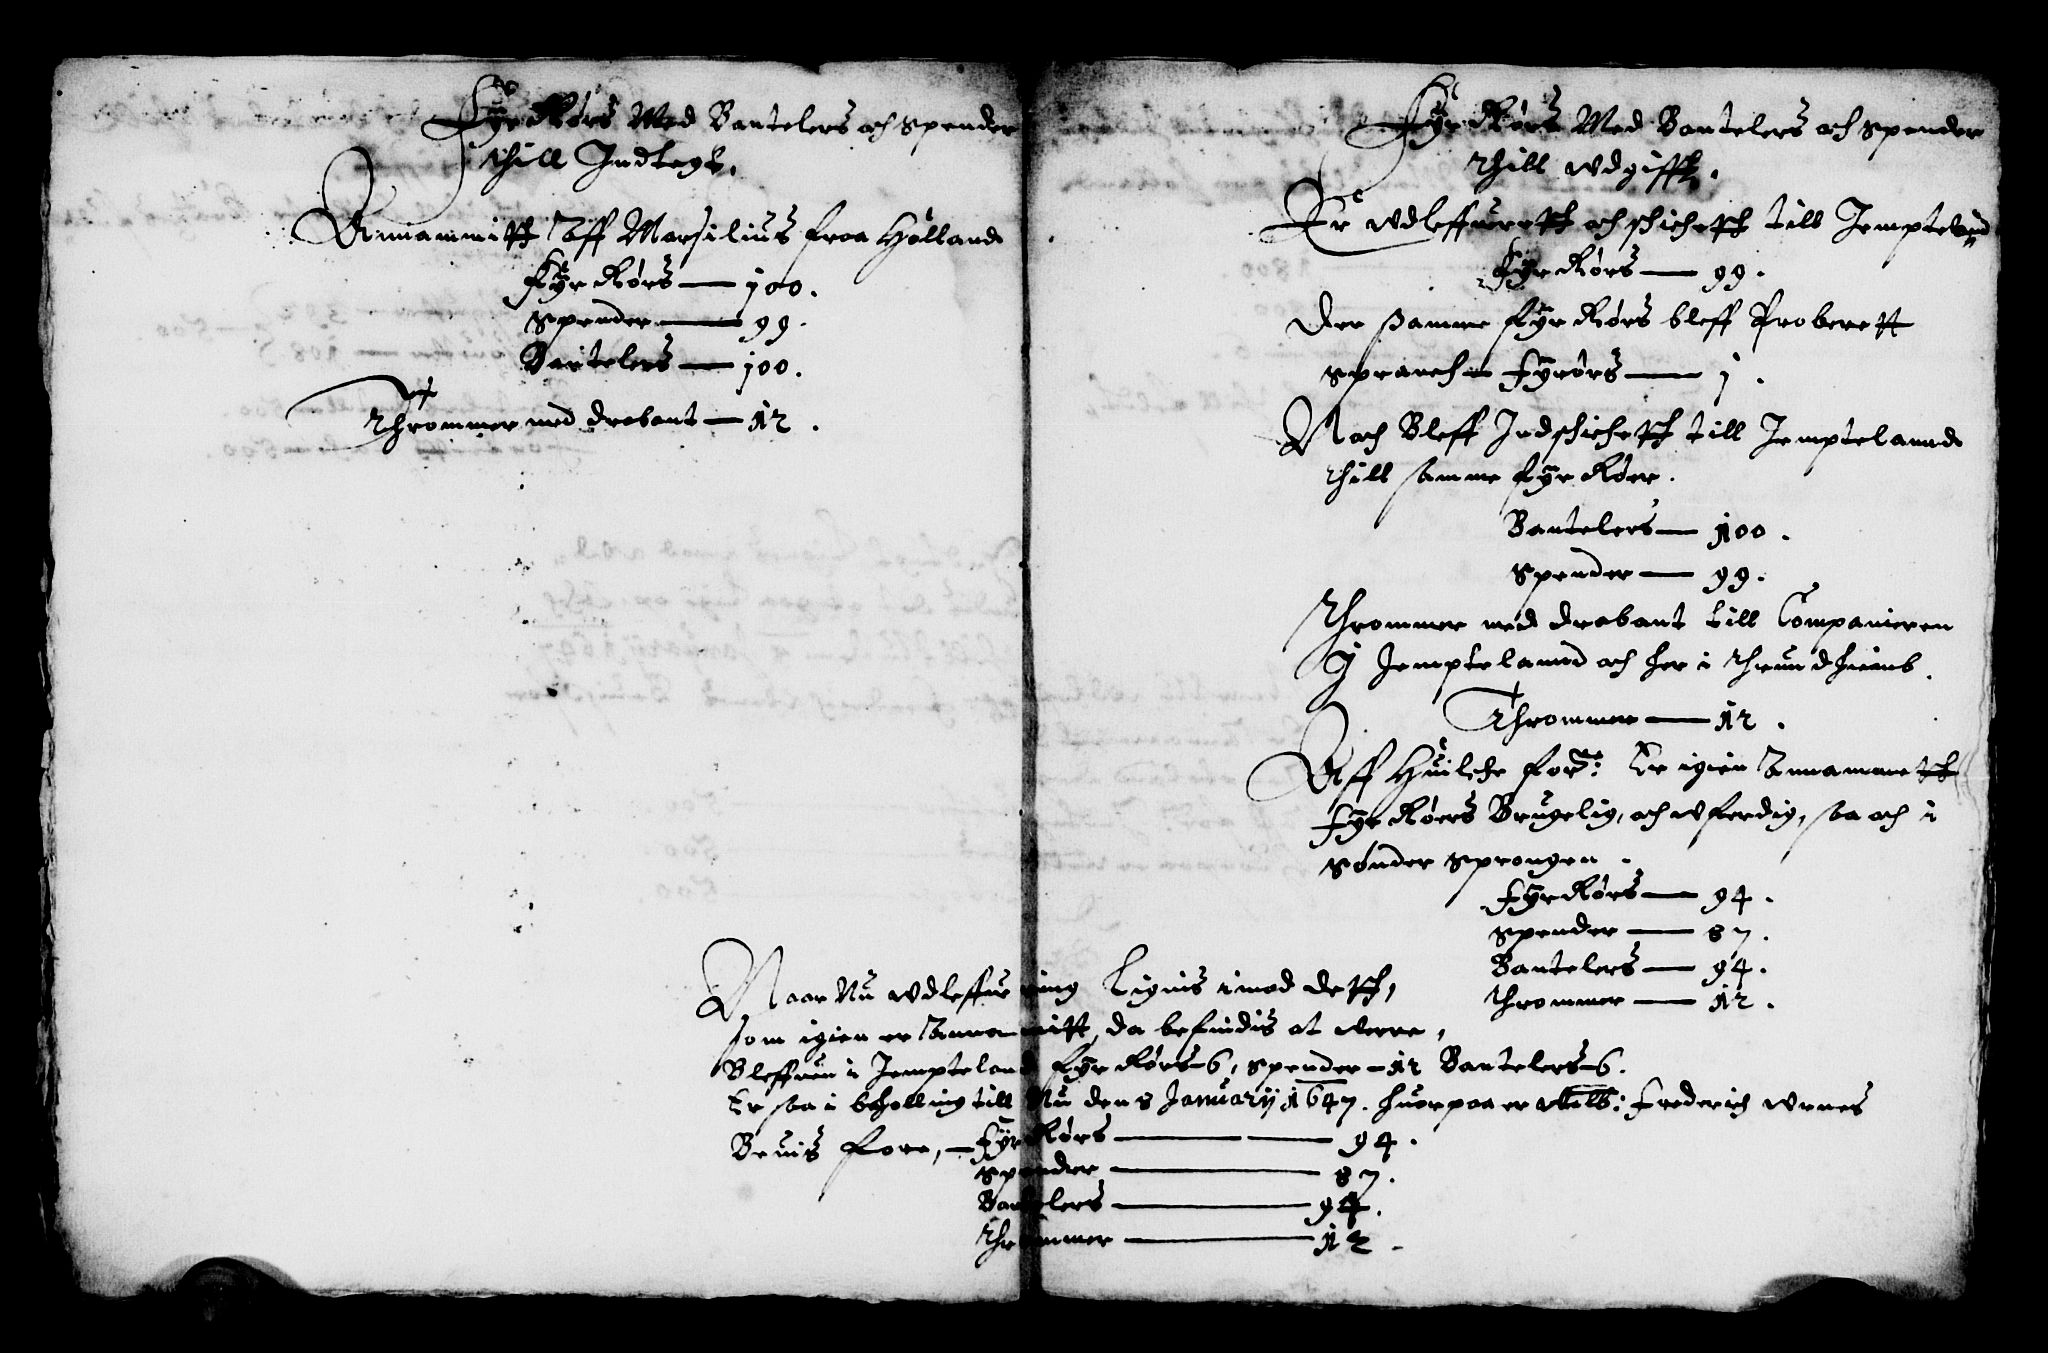 Fyr Rørs Med Bantelers och spender
thill Indtegt.
Annammitt Aff Marsilius fraa Holland
Fyr Rørs — 100.
Spender — 99.
Bantelers — 100.
Thrommer med drabant — 12.
Fyr Rørs Med Bantelers och spender
thill wdgifft.
Er wdleffuerett och schichett till Jempteland
Fyr Rørs — 99.
Der samme fyr Rørs bleff Proberett
sprarch Fyrørs — 1.
Noch Bleff Indschichett till Jempteland
thill samme fyr Rørr.
Bantelers — 100.
Spender — 99.
Thrommer med drabant till Companieren
J Jempteland och her i Thrundhiemb.
Thrommer — 12.
Aff Huilche for: Er igien Annammett
Fyr Rørs Brugelig, och wferdig, saa och i
sønder sprongen.
Fyr Rørs — 94.
Spender — 87.
Bantelers — 94.
thrommer — 12.
Naar Nu wdleffuering Lignis imod dett,
som igien er Annammitt, da befindis at verre,
Bleffuen i Jempteland fyr Rørs — 6, spender — 12 Bantelers — 6.
Er saa i beholling till Nu den 8 January 1647. huorpaa er Frederich wrnes
Beuis fore, — Fyr Rørs — 94.
Spender — 87.
Bantelers — 94.
Thrommer — 12.